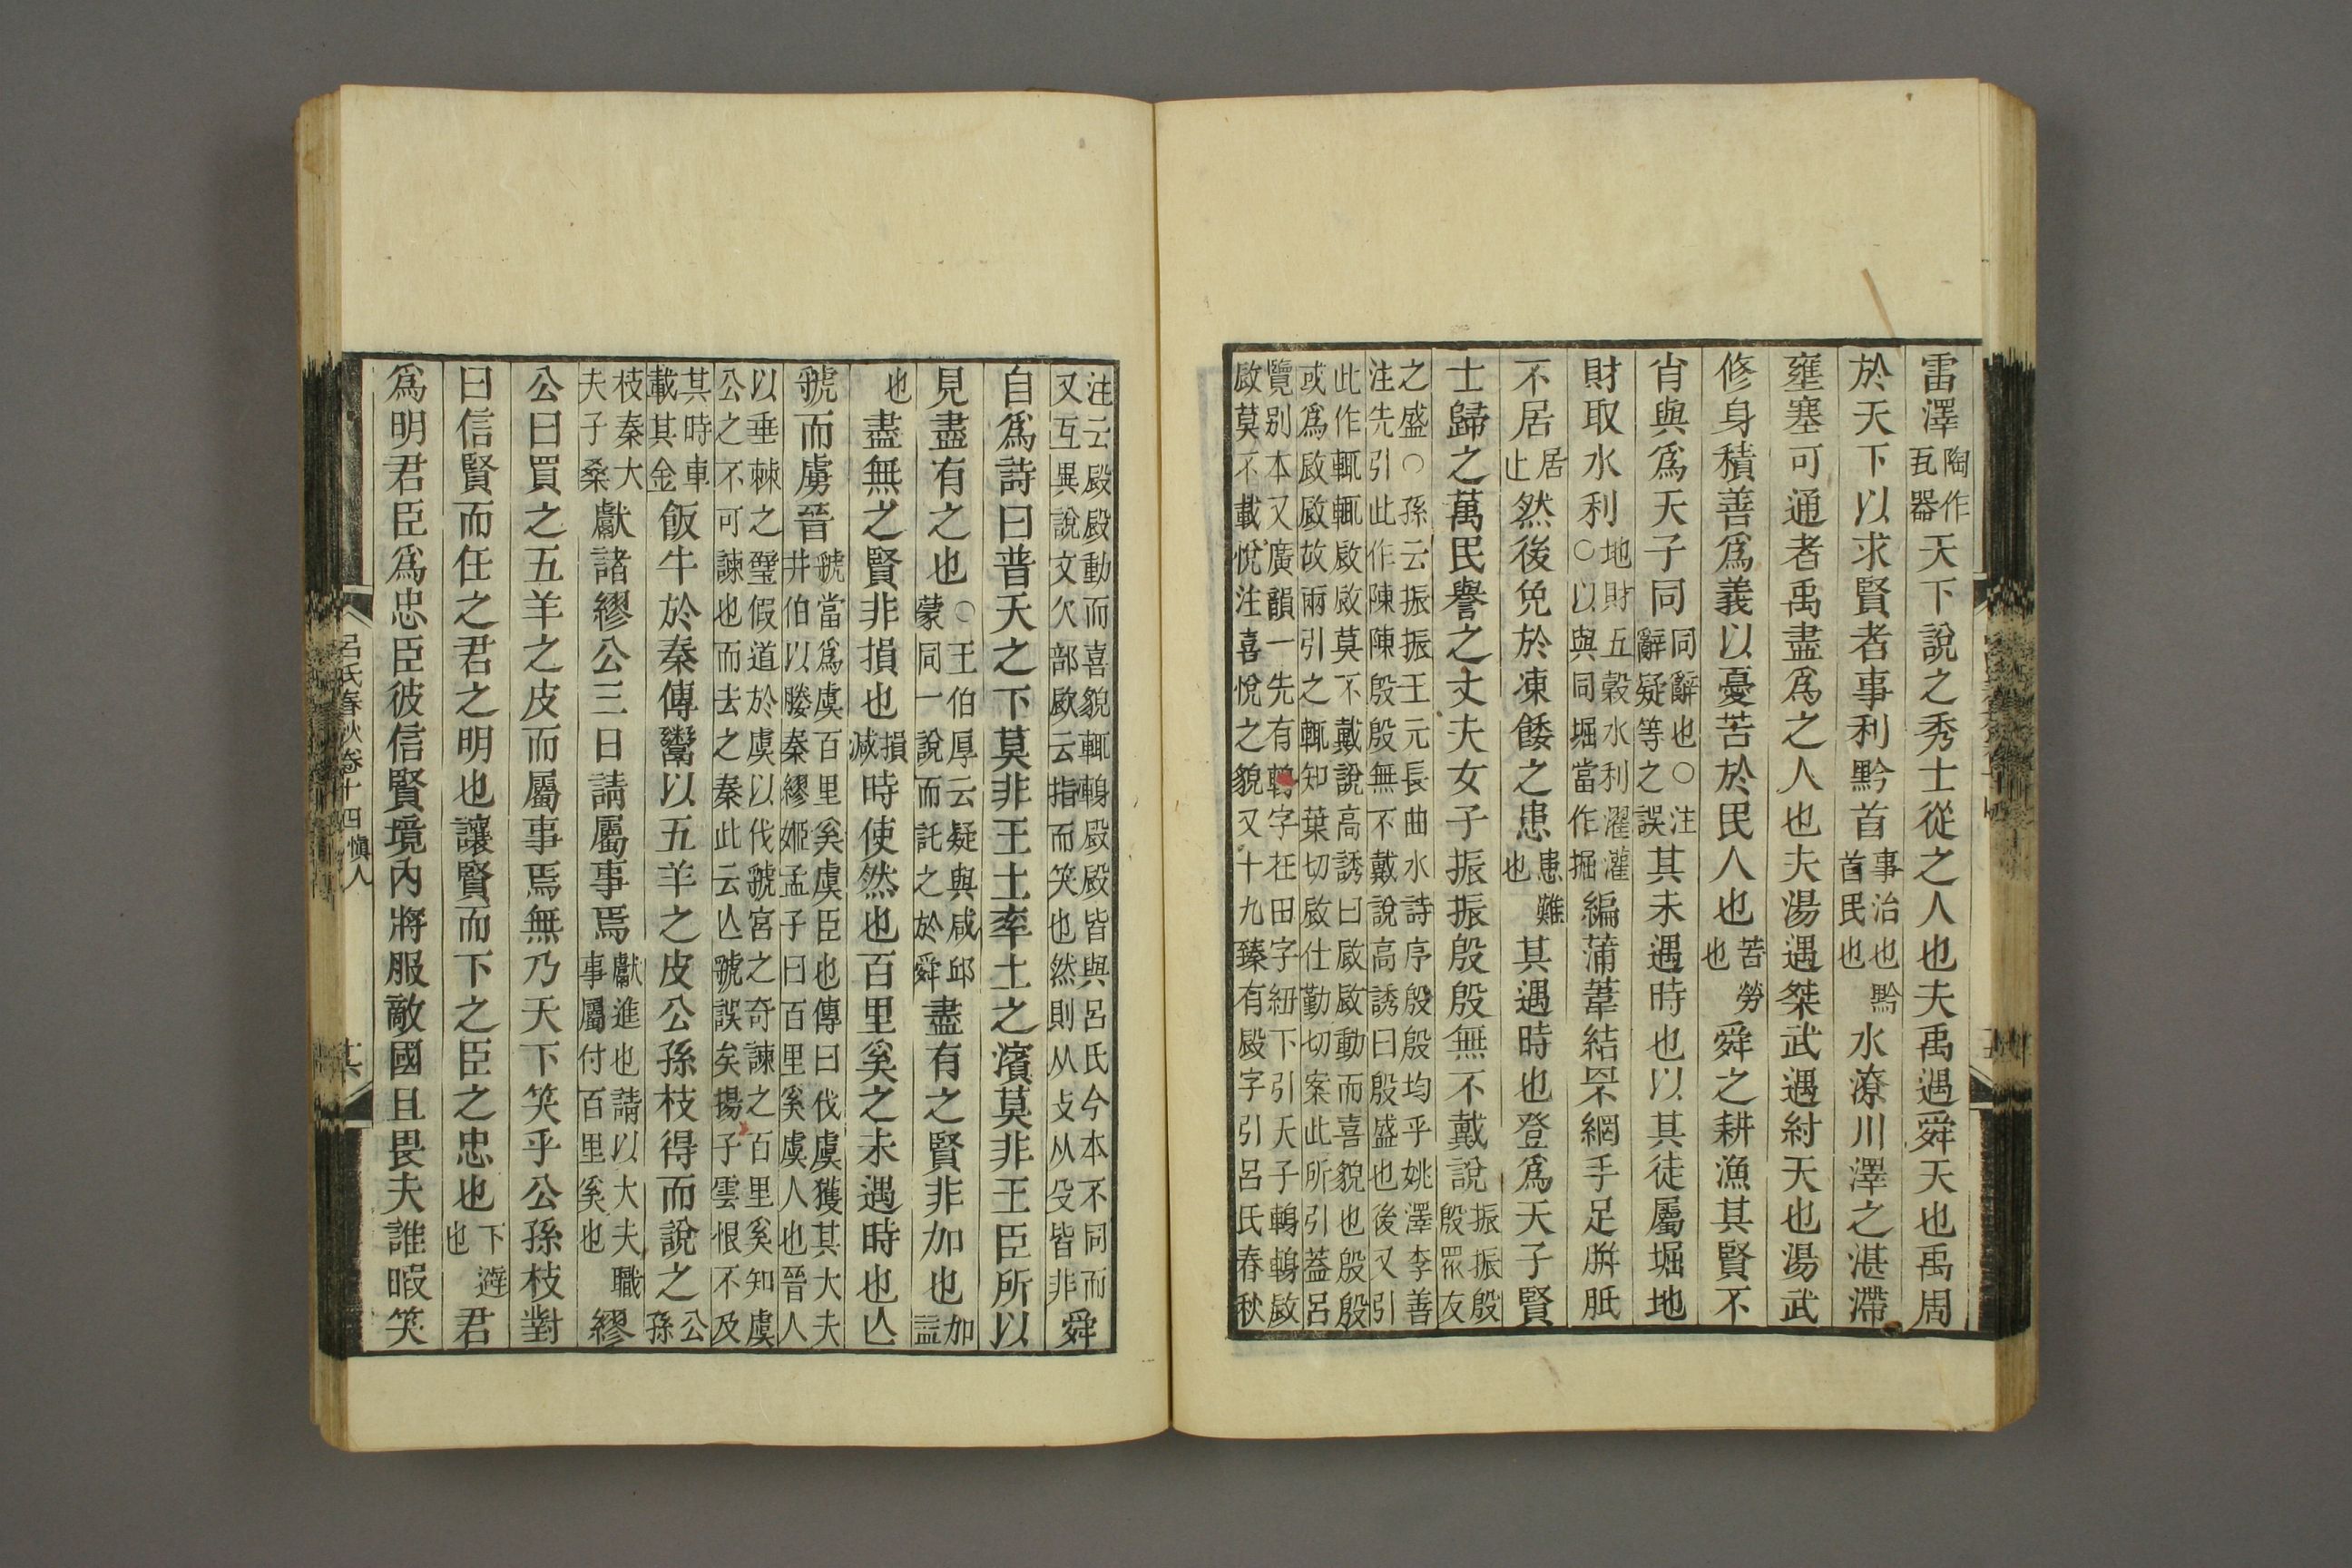 雷澤陶作瓦器天下說之秀士從之人也夫禹遇舜天也禹周
於天下以求賢者事利黔首事治也黔首民也水潦川澤之湛滯
壅塞可通者禹盡爲之人也夫湯遇桀武遇紂天也湯武
修身積善爲義以憂苦於民人也苦勞也舜之耕漁其賢不
肖與爲天子同同辭也○注辭疑等之誤其未遇時也以其徒屬堀地
財取水利地財五穀水利濯灌○以與同堀當作掘編蒲葦結罘網手足胼胝
不居居止然後免於凍餒之患患難也其遇時也登爲天子賢
士歸之萬民譽之丈夫女子振振殷殷無不戴說振振殷殷眾友
之盛○孫云振振王元長曲水詩序殷殷均乎姚澤李善
注先引此作陳陳殷殷無不戴說高誘曰殷盛也後又引
此作輒輒敐敐莫不戴說高誘曰敐敐動而喜貌也殷殷
或爲敐敐故兩引之輒知葉切敐仕勤切案此所引蓋呂
覽別本又廣韻一先有䡘字在田字紐下引天子䡘䡘敐
敐莫不載悅注喜悅之貌又十九臻有㲀字引呂氏春秋
注云㲀㲀動而喜貌輒䡘㲀㲀皆與呂氏今本不同而
又互異說文欠部歐云指而笑也然則从攴从殳皆非舜
自爲詩曰普天之下莫非王土率土之濱莫非王臣所以
見盡有之也○王伯厚云疑與咸邱蒙同一說而託之於舜盡有之賢非加也加益
也盡無之賢非損也損減時使然也百里奚之未遇時也亾
虢而虜晉虢當爲虞百里奚虞臣也傳曰伐虞獲其大夫井伯以媵秦繆姬孟子曰百里奚虞人也晉人
以垂棘之璧假道於虞以伐虢宮之奇諫之百里奚知虞
公之不可諫也而去之秦此云亾虢誤矣揚子雲恨不及
其時車載其金飯牛於秦傳鬻以五羊之皮公孫枝得而說之公孫
枝秦大夫子桑獻諸繆公三日請屬事焉獻進也請以大夫職事屬付百里奚也繆
公曰買之五羊之皮而屬事焉無乃天下笑乎公孫枝對
曰信賢而任之君之明也讓賢而下之臣之忠也下避也君
爲明君臣爲忠臣彼信賢境內將服敵國且畏夫誰暇笑
呂氏春秋卷十四慎人